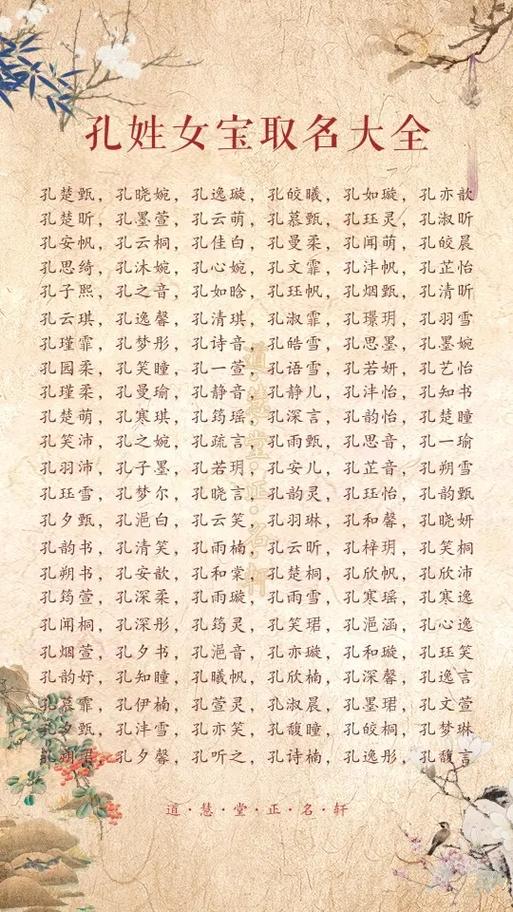 孔姓女宝取名大全
孔楚甄，孔晓婉，孔逸璇，孔皎曦，孔如璇，孔亦歆
孔楚昕，孔墨萱，孔云萌，孔慕甄，孔珏灵，孔淑昕
孔安帆，孔云桐，孔佳白，孔曼柔，孔闻萌，孔皎晨
孔思绮，孔沐婉，孔心婉，孔文霏，孔沣帆，孔芷怡
孔子熙，孔之音，孔如晗，孔珏帆，孔烟甄，孔清昕
孔云琪，孔逸馨，孔清琪，孔淑霏，孔璟玥，孔羽雪
孔瑾霏，孔梦彤，孔诗音，孔皓雪，孔思墨，孔墨婉
孔园柔，孔笑瞳，孔一萱，孔语雪，孔若妍，孔艺怡
孔瑾柔，孔曼瑜，孔静音，孔静儿，孔沣怡，孔知书
孔楚萌，孔寒琪，孔筠瑶，孔深言，孔韵怡，孔楚瞳
孔笑沛，孔之婉，孔疏言，孔雨甄，孔思音，孔一瑜
孔羽沛，孔子墨，孔若玥，孔安儿，孔芷音，孔朔雪
孔珏雪，孔梦尔，孔晓言，孔韵灵，孔珏怡，孔韵甄
孔夕甄，孔滟白，孔云笑，孔羽琳，孔和馨，孔晓妍
孔韵书，孔清笑，孔雨楠，孔云昕，孔梓玥，孔笑桐
孔朔书，孔安歆，孔和棠，孔楚桐，孔欣帆，孔欣沛
孔筠萱，孔深柔，孔雨璇，孔雨雪，孔寒瑶，孔寒逸
孔闻桐，孔深彤，孔筠灵，孔笑珺，孔滟涵，孔心逸
孔烟萱，孔夕书，孔滟音，孔亦璇，孔和璇，孔珏笑
孔韵妤，孔知瞳，孔曦帆，孔欣楠，孔深馨，孔逸言
孔慕霏，孔伊楠，孔萱灵，孔淑晨，孔墨珺，孔文萱
孔夕甄，孔沣雪，孔亦笑，孔馥瞳，孔皎桐，孔梦琳
孔朔君，孔夕馨，孔听之，孔诗楠，孔逸彤，孔馥言
道慧堂·正·名轩
道·慧·堂·正·名·轩